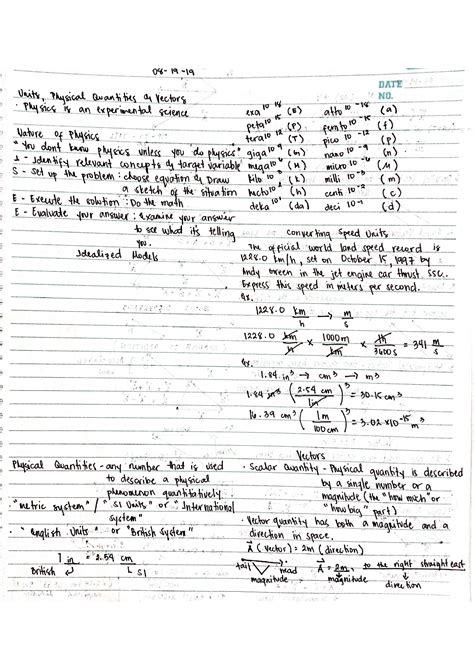 08-19-19
DATE
NO.
Units, Physical Quantities & Vectors
· Physics is an experimental science
Nature of Physics
"You dont know physics unless you do physics"
I - Identify relevant concepts & target variable
S - Set up the problem : choose equation & Draw
a sketch of the situation
E - Execute the solution : Do the math
E - Evaluate your answer : examine your answer
to see what it's telling
you.
Idealized Models
exa 10^18 (E) atto 10^-18 (a)
peta 10^15 (P) femto 10^-15 (f)
tera 10^12 (T) pico 10^-12 (p)
giga 10^9 (G) nano 10^-9 (n)
mega 10^6 (M) micro 10^-6 (μ)
kilo 10^3 (k) milli 10^-3 (m)
hecto 10^2 (h) centi 10^-2 (c)
deka 10^1 (da) deci 10^-1 (d)
converting Speed Units
The official world land speed record is
1228.0 km/h, set on October 15, 1997 by
Andy Green in the jet engine car thrust SSC.
Express this speed in meters per second.
1228.0 km/h → m/s
1228.0 km/h × 1000m/km × 1h/3600s = 341 m/s
1.84 in³ → cm³ → m³
1.84 in³ (2.54 cm/1in)³ = 30.15 cm³
(1m/100cm)³ = 3.02 x10^-5 m³
Physical Quantities - any number that is used
to describe a physical
phenomenon quantitatively.
"metric system" / "SI Units" or "International
system"
· "English Units" or "British System"
1 in = 2.54 cm
British SI
Vectors
· Scalar Quantity - Physical quantity is described
by a single number or a
magnitude (the "how much" or
"how big" part)
· Vector quantity has both a magnitude and a
direction in space.
A (vector) = 2m (direction)
tail head A = 2m, to the right straight east
magnitude magnitude direction